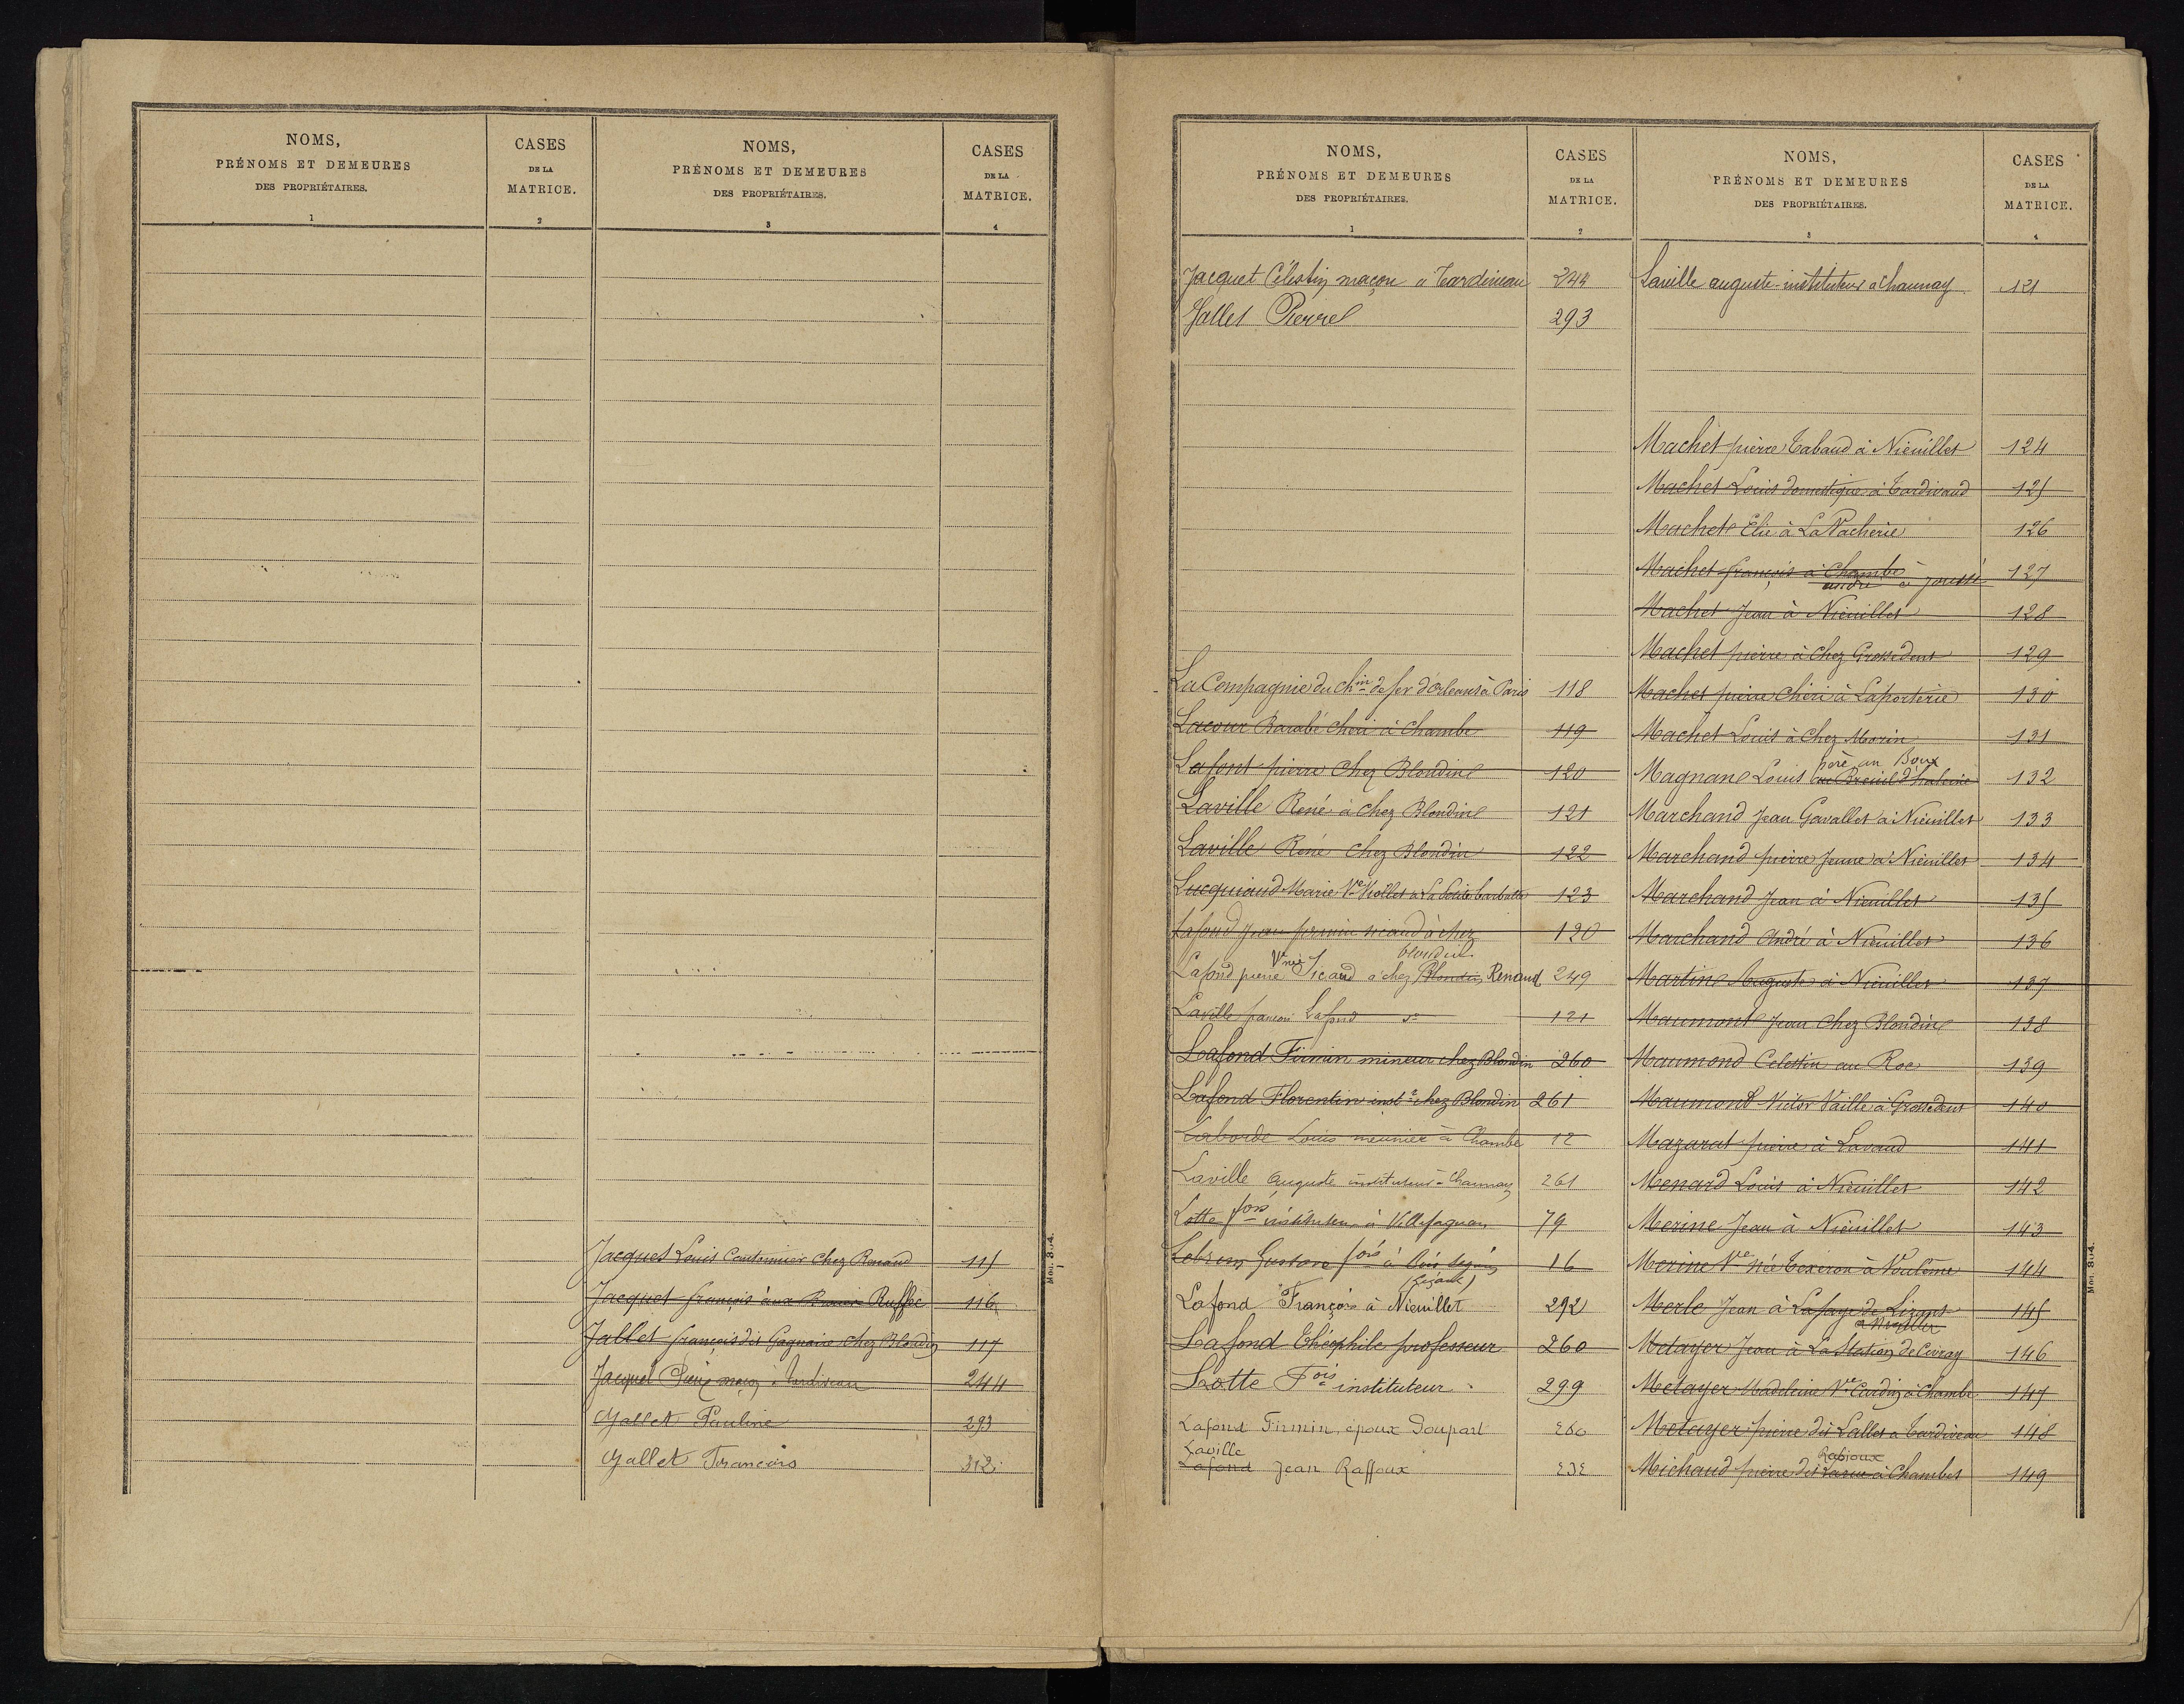 NOMS,
PRÉNOMS ET DEMEURES
DES PROPRIÉTAIRES.
1
CASES
DE LA
MATRICE.
2
NOMS,
PRÉNOMS ET DEMEURES
DES PROPRIÉTAIRES.
3
CASES
DE LA
MATRICE.
4
Jacquet Louis Cantonnier Chez Renaud 115
Jacquet françois aux Ruffec 116
Jallet françois dit Gagnaire Chez Blondin 117
Jacquet Pierre maçon à Tardiveau 244
Jallet Pauline 293
Jallet François 312
Mod. 3.04.
NOMS,
PRÉNOMS ET DEMEURES
DES PROPRIÉTAIRES.
1
CASES
DE LA
MATRICE.
2
Jacquet Célestin maçon à Tardiveau 244
Jallet Pierre 293
La Compagnie du chin de fer d'Orléans à Paris 118
Lacour Barabé Chéri à Chambe 119
Lafont pierre Chez Blondin 120
Laville René à Chez Blondin 121
Laville René Chez Blondin 122
Lucquiaud Marie Ve Viollet à La Petite 123
Lafond Jean firmin à chez 120
blondin
Lafond pierre Vve née Sicard à chez Blondin Renaud 249
Laville françois Lafond do 121
Lafond Firmin mineur chez Blondin 260
Lafond Florentin instr chez Blondin 261
Laborde Louis meunier à Chambe 12
Laville Auguste instituteur à Chaunay 261
Lotte fois instituteur à Villefagnan 79
Lebrun Gustave fois à 16
Lafond François à Nieuillet 292
Lafond Théophile professeur 260
Lotte Fois instituteur 299
Lafond Firmin, époux Doupart 260
Laville
Lafond Jean Raffoux 232
NOMS,
PRÉNOMS ET DEMEURES
DES PROPRIÉTAIRES.
3
CASES
DE LA
MATRICE.
4
Laville auguste instituteur à Chaunay 121
Machet pierre Tabaud à Nieuillet 124
Machet Louis domestique à Tardivaud 125
Machet Elie à La Vacherie 126
Machet françois à Chambe 127
andré à Joussé
Machet Jean à Nieuillet 128
Machet pierre à chez Grossedent 129
Machet pierre Chéri à Laporterie 130
Machet Louis à Chez Morin 131
père au Boux
Magnan Louis au Breuil d'haleine 132
Marchand Jean Gavallet à Nieuillet 133
Marchand pierre Jeune à Nieuillet 134
Marchand Jean à Nieuillet 135
Marchand André à Nieuillet 136
Martin Auguste à Nieuillet 137
Maumont Jean Chez Blondin 138
Maumond Celestin au Roc 139
Maumont Victor Vaille à Grossedent 140
Mazarat pierre à Lavaud 141
Menard Louis à Nieuillet 142
Merine Jean à Nieuillet 143
Merine Ve née Texeron à Voulême 144
Merle Jean à Lafaye de Lizant 145
à Nieuillet
Metayer Jean à La Station de Civray 146
Metayer Madeleine Ve Cardin à Chambe 147
Metayer pierre dit Lallet à Tardiveau 148
Rabioux
Michaud pierre dit à Chambes 149
Mod. 3.04.